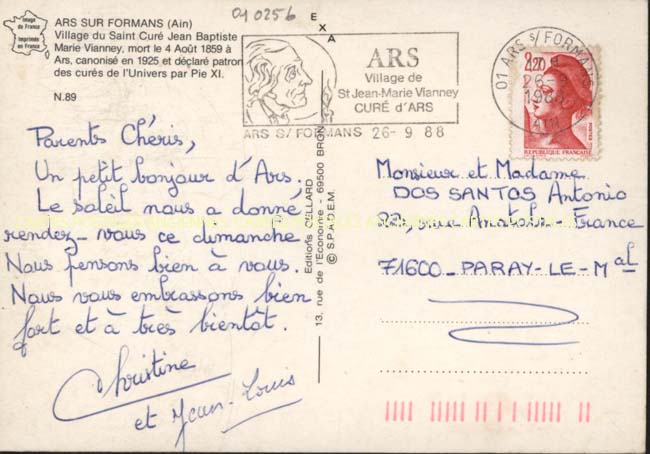 010256
Image
de France
Imprimée
en France
ARS SUR FORMANS (Ain)
Village du Saint Curé Jean Baptiste
Marie Vianney, mort le 4 Août 1859 à
Ars, canonisé en 1925 et déclaré patron
des curés de l'Univers par Pie XI.
N.89
EXA
ARS
Village de
St Jean-Marie Vianney
CURÉ d'ARS
ARS S/ FORMANS 26-9 88
01 ARS S/ FORMANS
26-9
AIN
2,20
REPUBLIQUE FRANCAISE
Parents Chéris,
Un petit bonjour d'Ars.
Le soleil nous a donné
rendez-vous ce dimanche
Nous pensons bien à vous.
Nous vous embrassons bien
fort et à très bientôt.
Christine
et Jean-Louis
Editions CELLARD
13, rue de l'Economie - 69500 BRON
© S.P.A.D.E.M.
Monsieur et Madame
DOS SANTOS Antonio
rue Anatole France
71600_PARAY-LE-Mal